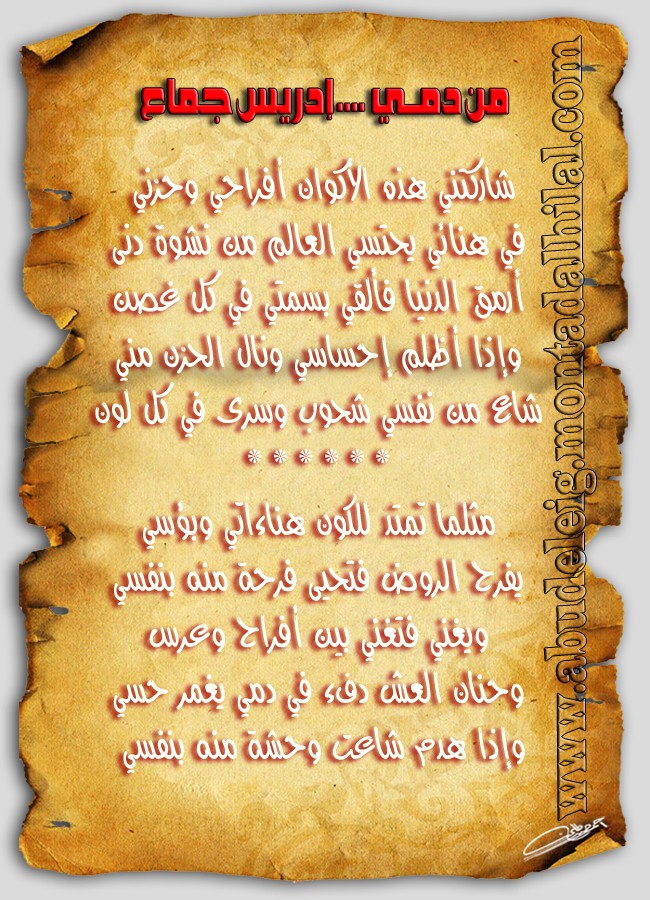 من دمي .... إدريس جماع
شاركتني هذه الاكوان أفراحي وحزني
في هنائي يحتسي العالم من نشوة دنى
أرمق الدنيا فألقي بسمتي في كل غصن
وإذا أظلم إحساسي ونال الحزن مني
شاع من نفسي شحوب وسرى في كل لون
******
مثلما تمتد للكون هناءاتي وبؤسي
يفرح الروض فتحيى فرحة منه بنفسي
ويغني فتغني بين أفراح وعرس
وحنان العش دفء في دمي يغمر حسي
وإذا هدم شاعت وحشة منه بنفسي
www.abudeleig.montadalhilal.com